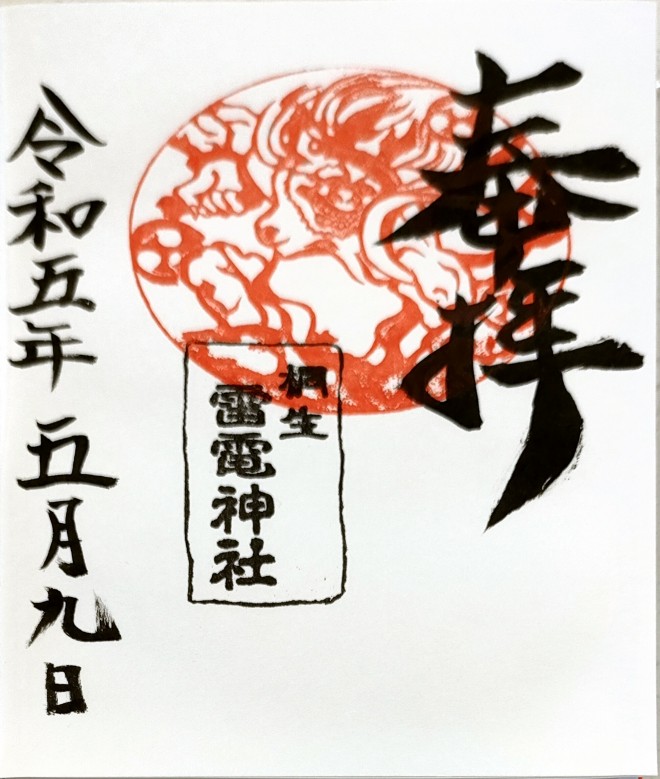 奉拝
桐生
雷電神社
令和五年五月九日